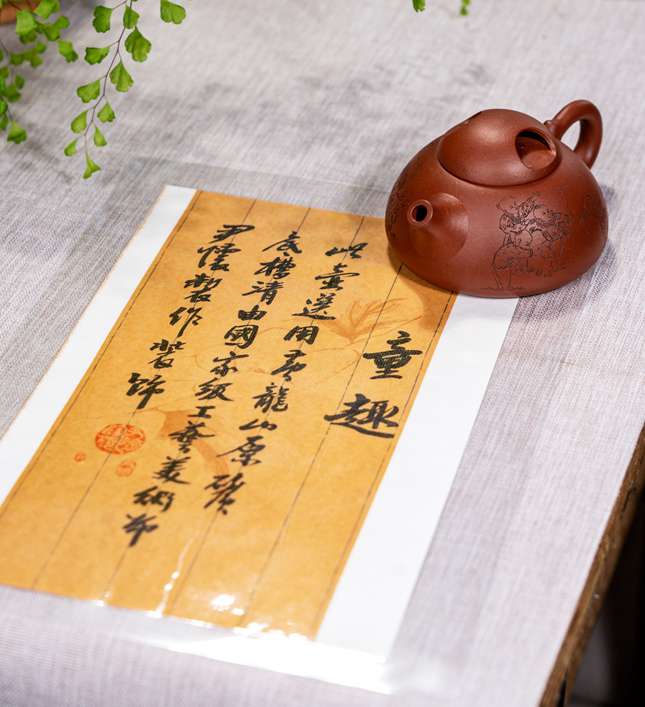 童趣
此壺選用黄龍山原礦
底槽清由國家級工藝美術師
尹製作裝飾